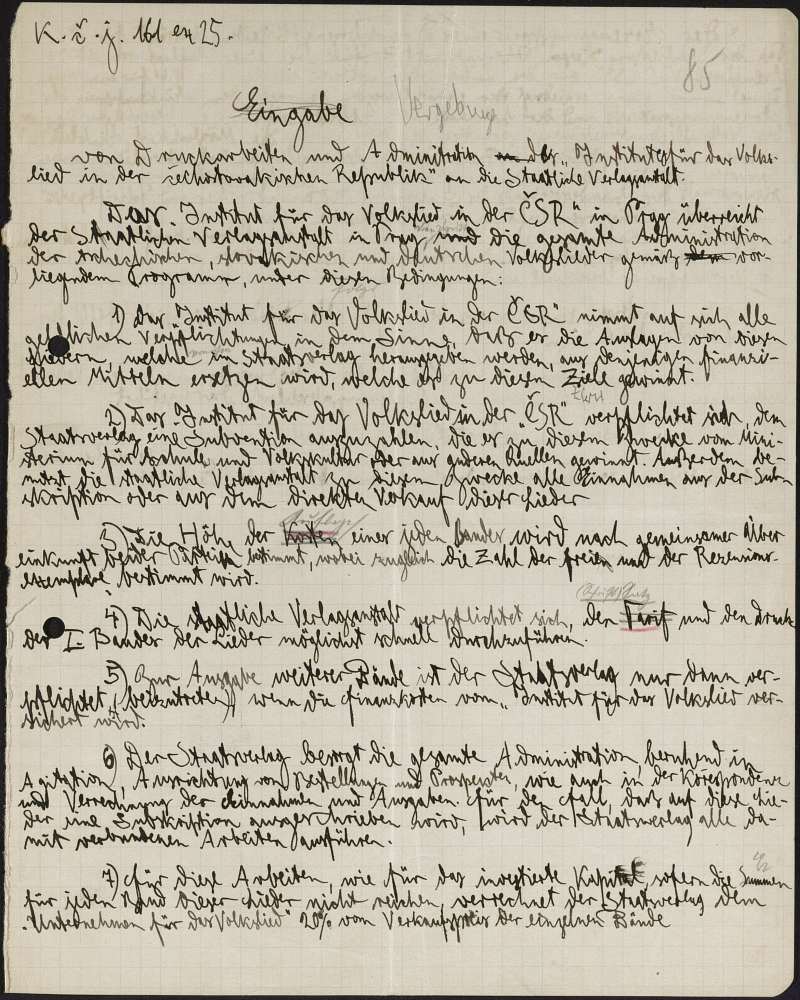 K. č. j. 161 ex 25.
85
Eingabe Vergebung
von Druckarbeiten und Adminitration der „Institutes für das Volks-
lied in der čechoslovakischen Republik" an die Staatliche Verlagsanstalt.
Das „Institut für das Volkslied in der ČSR" in Prag überreicht
der Staatlichen Verlagsanstalt in Prag und die gesamte Administration
der tschechischen, slovakischen und deutschen Volkslieder gemäß dem vor-
liegendem Programm, unter diesen Bedingungen:
1) Das „Institut für das Volkslied in der ČSR" nimmt auf sich alle
geldlichen Verpflichtungen in dem Sinne, daß es die Auslagen von diesen
Liedern, welche im Staatsverlag herausgegeben werden, aus denjenigen finanzi-
ellen Mitteln ersetzen wird, welche es zu diesem Ziele gewinnt.
2) Das „Institut für das Volkslied in der „ČSR" verpflichtet sich, dem
Staatsverlag eine Subvention auszuzahlen, die es zu diesem Zwecke vom Mini-
sterium für Schule und Volkskultur oder aus anderen Quellen gewinnt. Außerdem be-
nützt die staatliche Verlagsanstalt zu diesem Zwecke alle Einnahmen aus der Sub-
skription oder aus dem direkten Verkauf dieser Lieder
3) Die Höhe der Kosten Auflage eines jeden Bandes wird nach gemeinsamer Über
einkunft beider Parteien bestimmt, wobei zugleich die Zahl der freien und der Rezensions-
exemplare bestimmt wird.
4) Die staatliche Verlagsanstalt verpflichtet sich, den Tarif und den Druck
des I. Bandes der Lieder möglichst schnell durchzuführen.
5) Zur Ausgabe weiterer Bände ist der Staatsverlag nur dann ver-
pflichtet (beizutreten), wenn die Finanzkosten vom „Institut für das Volkslied ver-
sichert wird.
6) Der Staatsverlag besorgt die gesamte Administration, beruhend in
Agitation, Ausrichtung von Bestellungen und Prospekten, wie auch in der Korespondenz
und Verrechnung der Einnahmen und Ausgaben. Für den Fall, daß auf diese Lie-
der eine Subskription ausgeschrieben wird, wird der Staatsverlag alle da-
mit verbundenen Arbeiten ausführen.
7) Für diese Arbeiten, wie für das investierte Kapital, sofern die Summen
für jeden Band dieser Lieder nicht reichen, verrechnet der Staatsverlag dem
„Unternehmen für das Volkslied" 20% vom Verkaufspreis der einzelnen Bände